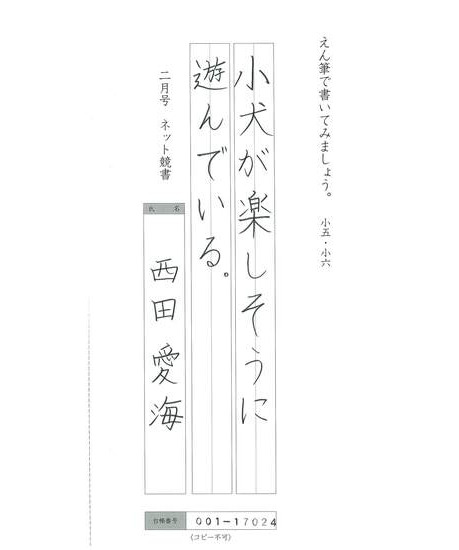 えん筆で書いてみましょう。 小五・小六
小犬が楽しそうに
遊んでいる。
二月号 ネット競書
氏 名
西田愛海
台帳番号 001-17024
(コピー不可)